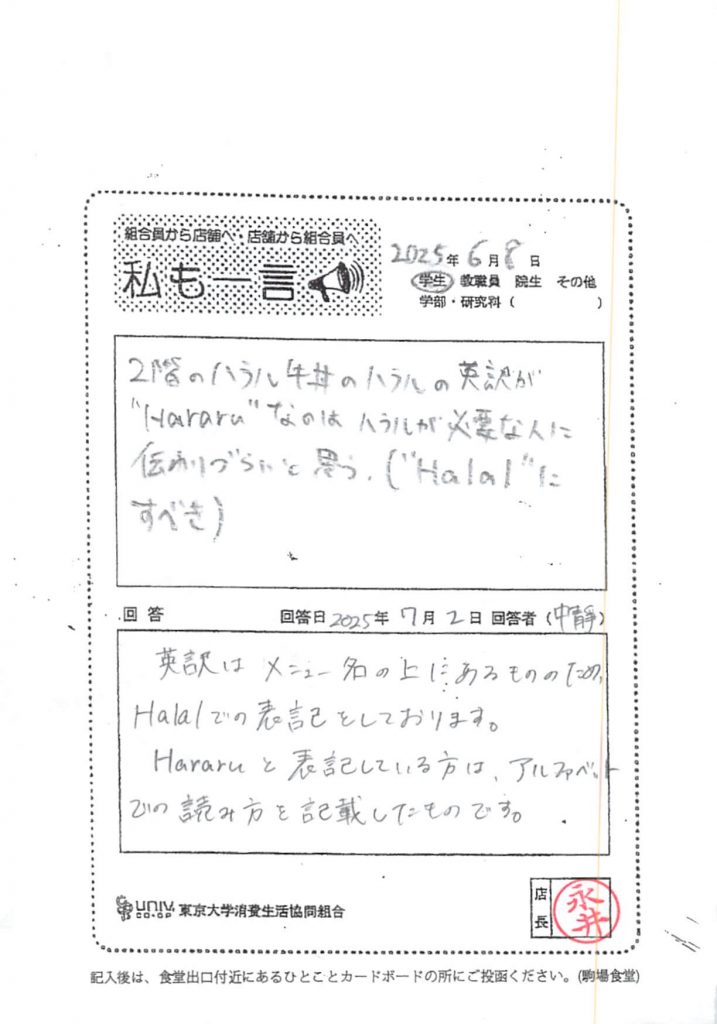 組合員から店舗へ・店舗から組合員へ
私も一言
2025年 6月 8日
学生 教職員 院生 その他
学部・研究科( )
2階のハラル牛丼のハラルの英訳が
"Hararu"なのはハラルが必要な人に
伝わりづらいと思う。("Halal"に
すべき)
回答 回答日 2025年 7月 2日 回答者(中靜)
英訳はメニュー名の上にあるもののため、
Halalでの表記をしております。
Hararuと表記している方は、アルファベット
での読み方を記載したものです。
UNIV. CO-OP 東京大学消費生活協同組合
店長 永井
記入後は、食堂出口付近にあるひとことカードボードの所にご投函ください。(駒場食堂)